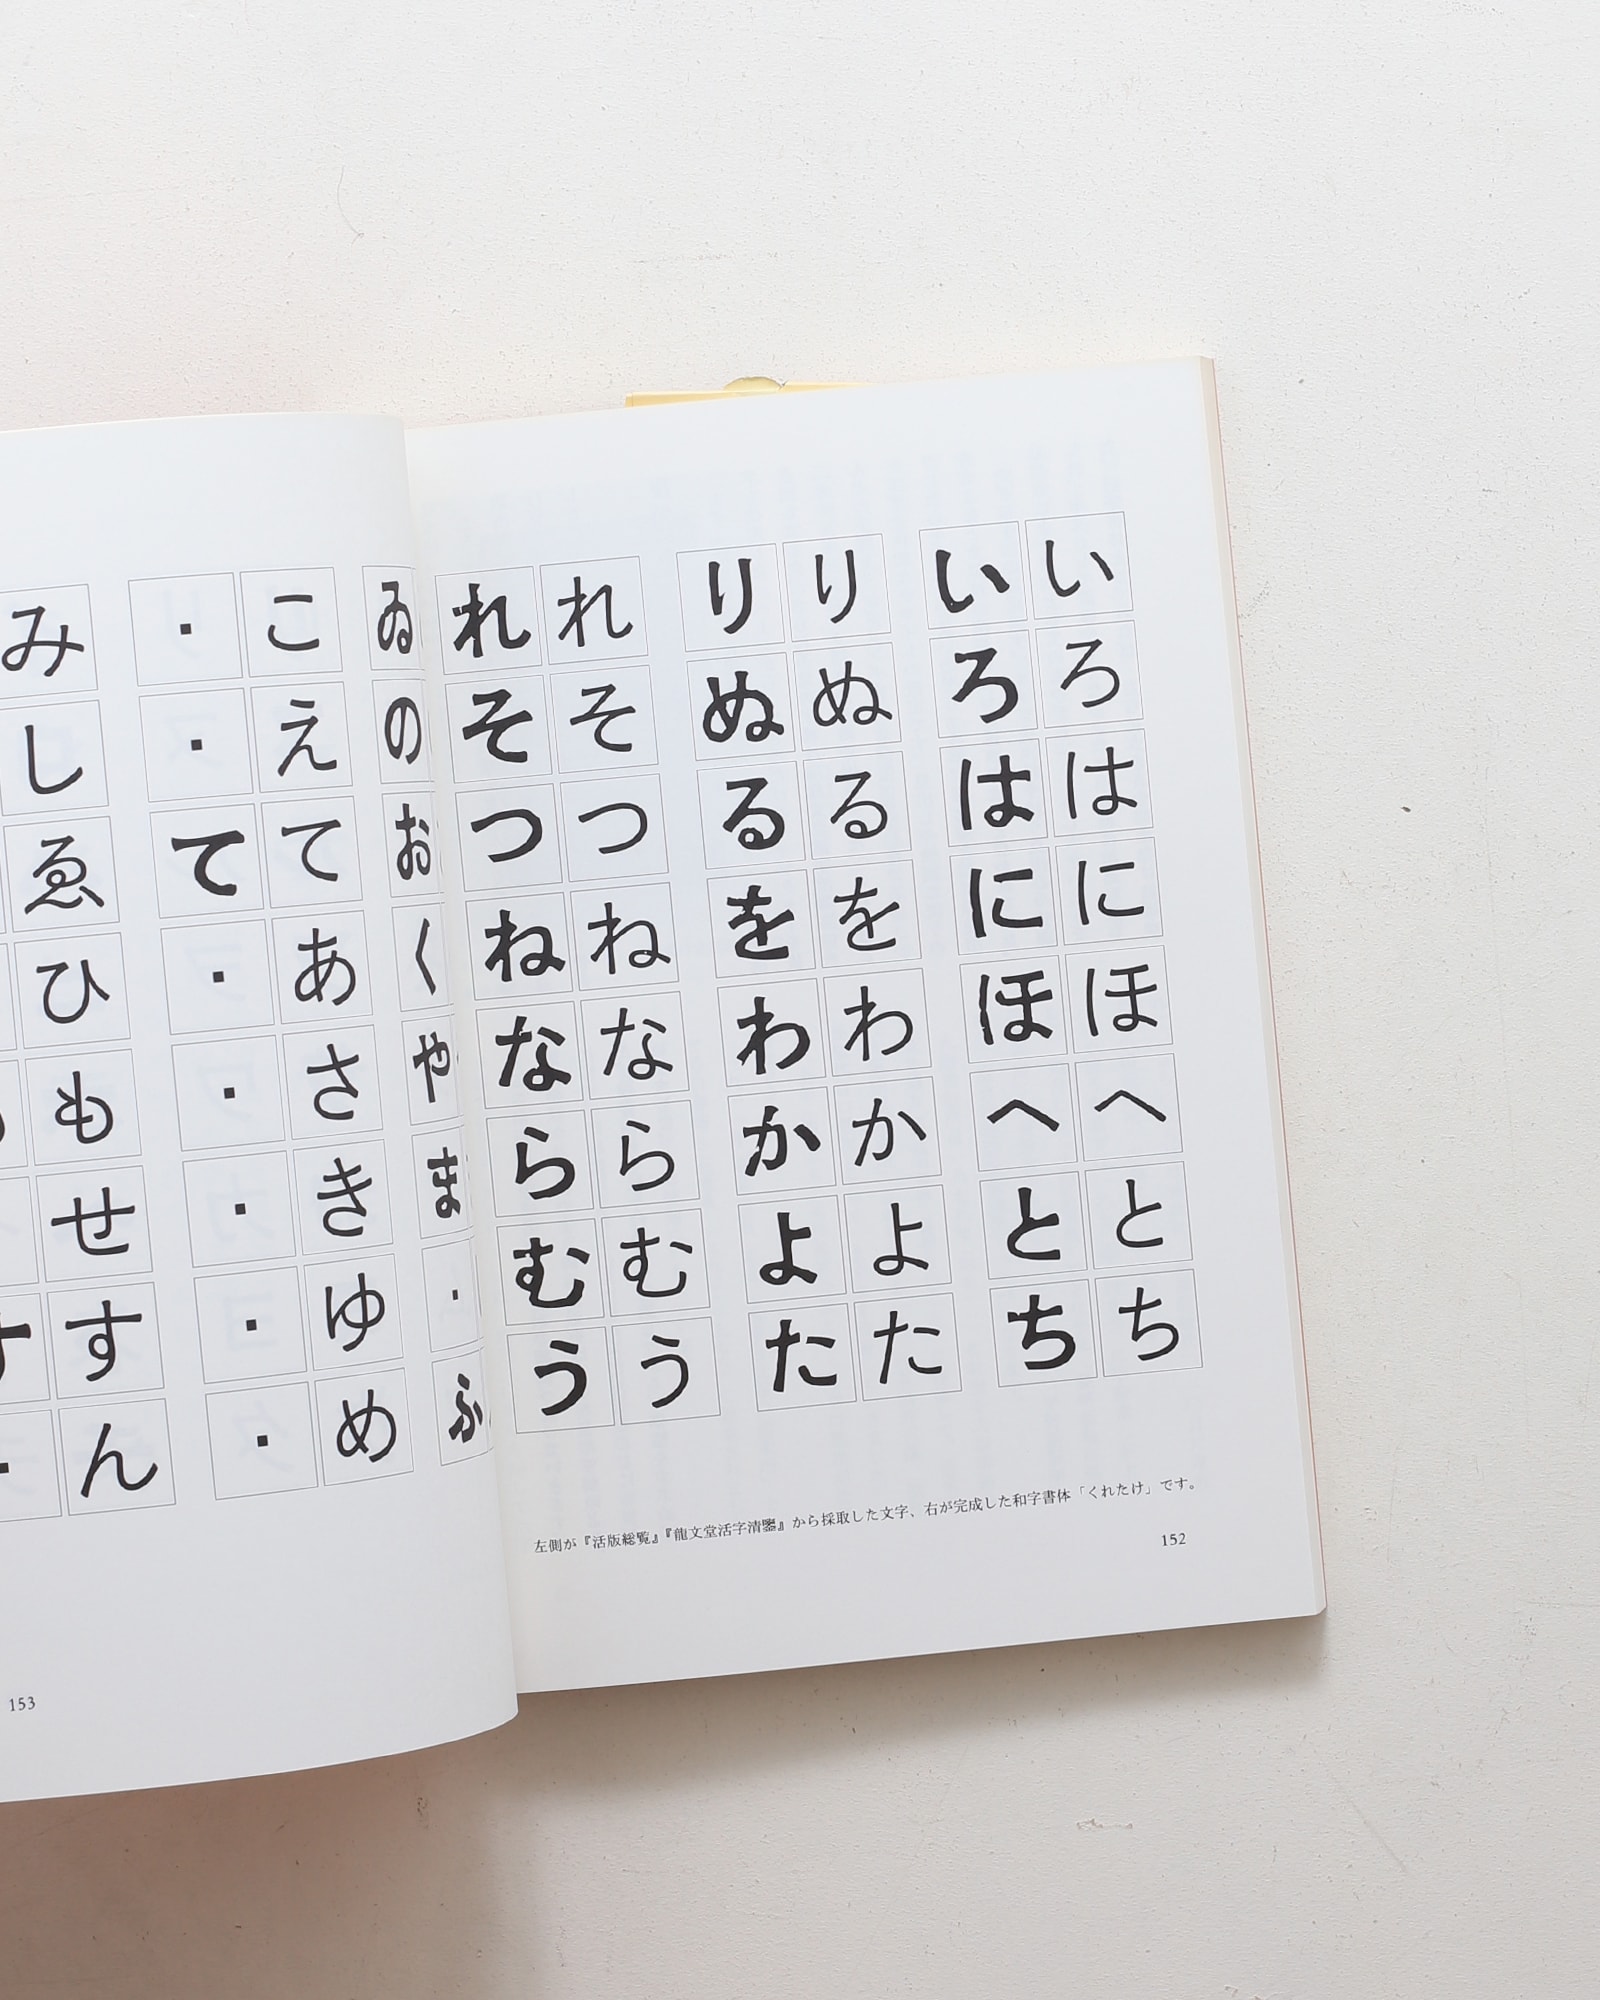 いろはにほへとち
いろはにほへとち
りぬるをわかよた
りぬるをわかよた
れそつねならむう
れそつねならむう
左側が『活版総覧』『龍文堂活字清鑒』から採取した文字、右が完成した和字書体「くれたけ」です。
152
ゐのおくやま・ふ
こえてあさきゆめ
・・て・・・・・
みしゑひもせすん
153